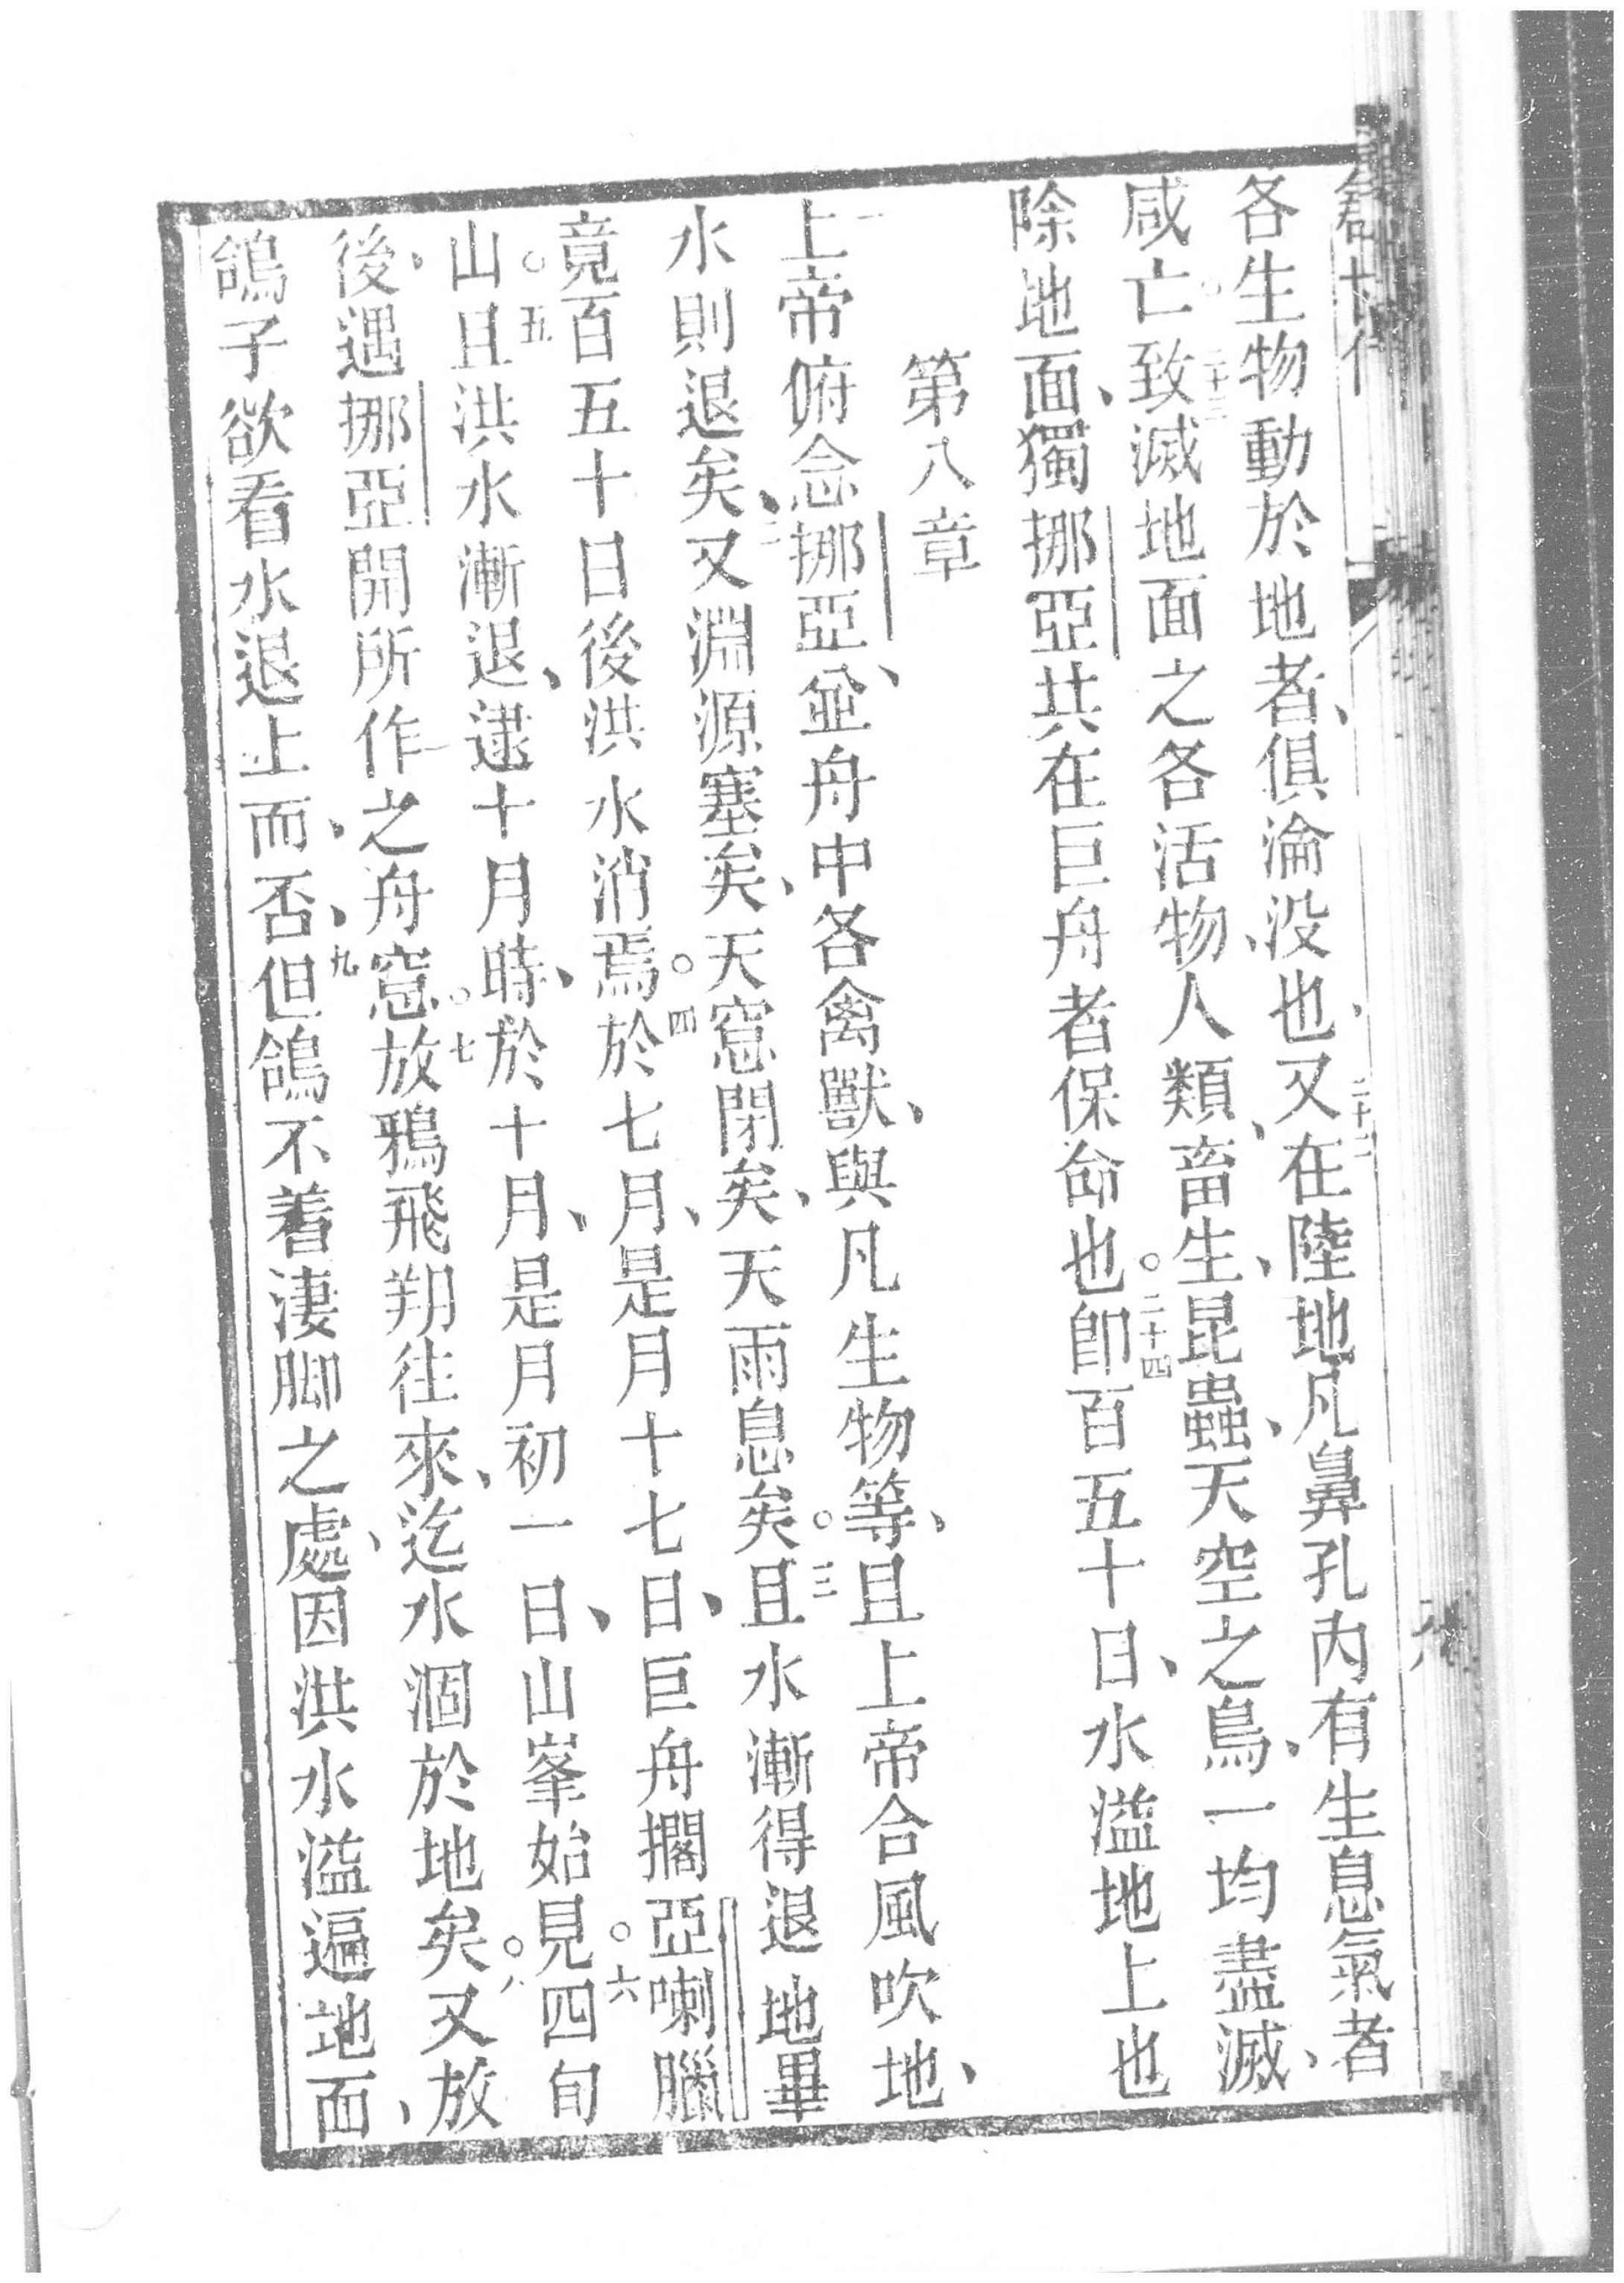 各生物動於地者、俱淪没也、二十二又在陸地凡鼻孔内有生息氣者
咸亡。二十三致滅地面之各活物、人類、畜生、昆蟲、天空之鳥、一均盡滅、
除地面、獨挪亞共在巨舟者保命也。二十四即百五十日、水溢地上也
第八章
一上帝俯念挪亞、並舟中各禽獸、與凡生物等、且上帝合風吹地、
水則退矣、二又淵源塞矣、天窓閉矣、天雨息矣。三且水漸得退地畢
竟百五十日後洪水消焉。四於七月、是月十七日、巨舟擱亞喇臘
山。五且洪水漸退、逮十月時、於十月、是月初一日、山峯始見。六四旬
後、遇挪亞開所作之舟窓。七放鴉飛翔往來、迄水涸於地矣。八又放
鴿子欲看水退上而、否、九但鴿不着淒脚之處、因洪水溢遍地面、